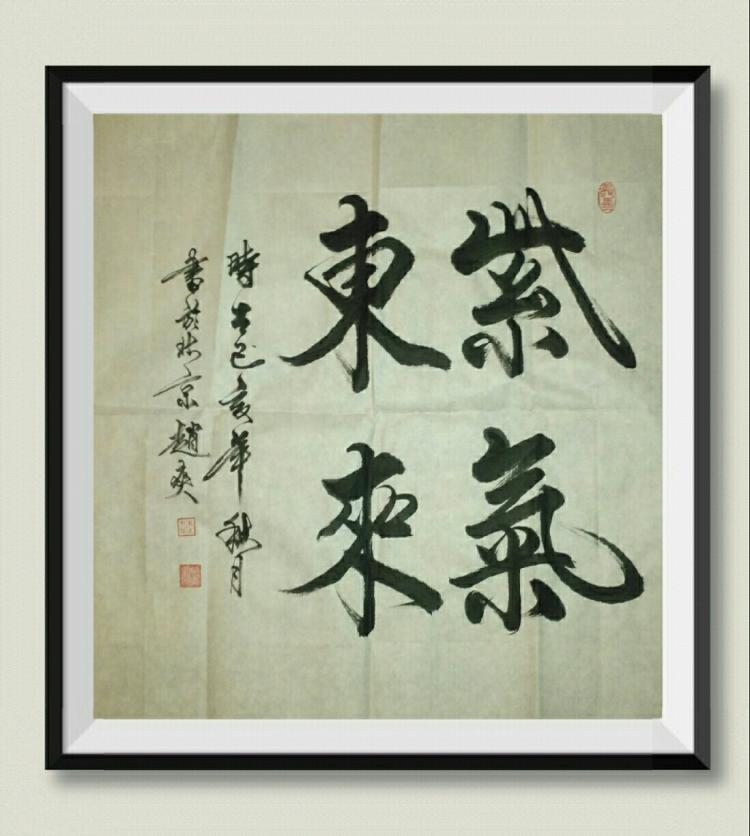 紫氣
東來
時在己亥年秋月
書於北京趙爽